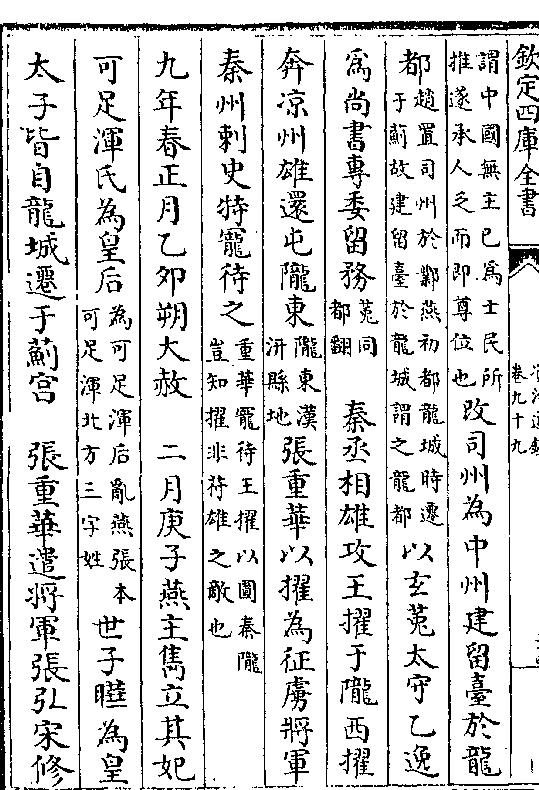 欽定四庫全書
卷九十九
謂中國無主已為士民所
推遂承人乏而即尊位也
改司州為中州建留臺於龍
都
趙置司州於鄴燕初都龍城時遷
于薊故建留臺於龍城謂之龍都
以玄菟太守乙逸
為尚書專委留務
菟同
都翻
秦丞相雄攻王擢于隴西擢
奔涼州雄還屯隴東
隴東漢
汧縣地
張重華以擢為征虜將軍
秦州刺史特寵待之
重華寵待王擢以圖秦隴
豈知擢非苻雄之敵也
九年春正月乙卯朔大赦 二月庚子燕主雋立其妃
可足渾氏為皇后
為可足渾后亂燕張本
可足渾北方三字姓
世子曄為皇
太子皆自龍城遷于薊宮 張重華遣將軍張弘宋修